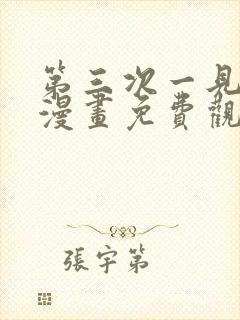 第三次一見
漫畫免費觀
張宇第